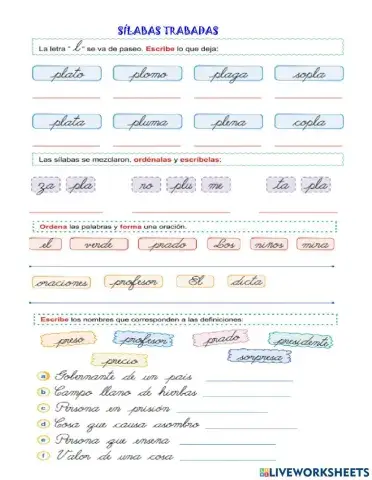 SÍLABAS TRABADAS
La letra "l" se va de paseo. Escribe lo que deja:
plato plomo plaga sopla
plata pluma plena copla
Las sílabas se mezclaron, ordénalas y escríbelas:
za pla no plu me ta pla
Ordena las palabras y forma una oración.
el verde prado Los niños mira
oraciones profesor El dicta
Escribe los nombres que corresponden a las definiciones:
preso profesor prado presidente
precio sorpresa
a Gobernante de un país
b Campo llano de hierbas
c Persona en prisión
d Cosa que causa asombro
e Persona que enseña
f Valor de una cosa
LIVEWORKSHEETS